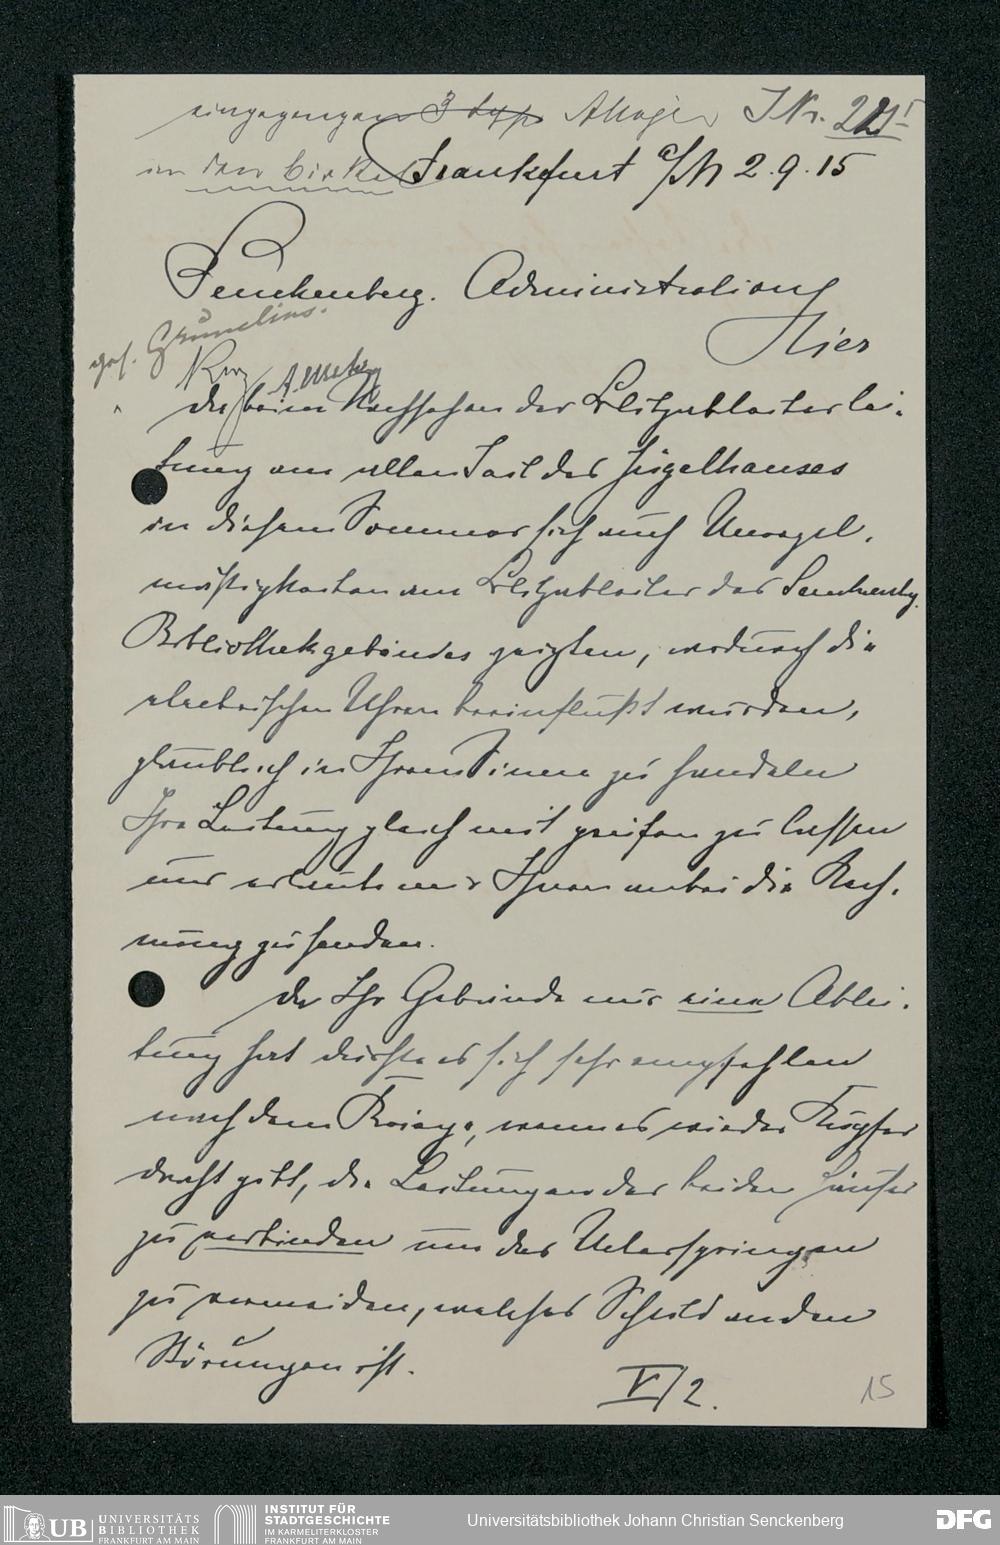 eingegangen 3 J.Nr. 221
in den
Frankfurt a/M 2.9.15
Senckenberg. Administration
Hier
ges. Grumelius.
Da beim Nachsehen der Blitzableiterlei-
tung am alten Teil des Jügelhauses
in diesem Sommer sich auch Unregel-
mäßigkeiten am Blitzableiter des Senckenbg.
Bibliothekgebäudes zeigten, wodurch die
electrischen Uhren beeinflußt wurden,
glaubte ich in Ihrem Sinne zu handeln
Ihre Leitung gleich mit prüfen zu lassen
und erlaube mir Ihnen anbei die Rech-
nung zu senden.
Da Ihr Gebäude nur eine Ablei-
tung hat dürfte es sich sehr empfehlen
nach dem Kriege, wenn es wieder Kupfer
draht gibt, die Leitungen der beiden Häuser
zu verbinden um das Ueberspringen
zu vermeiden, welches Schuld an den
Störungen ist.
V/2.
15
UB UNIVERSITÄTS
BIBLIOTHEK
FRANKFURT AM MAIN
INSTITUT FÜR
STADTGESCHICHTE
IM KARMELITERKLOSTER
FRANKFURT AM MAIN
Universitätsbibliothek Johann Christian Senckenberg
DFG